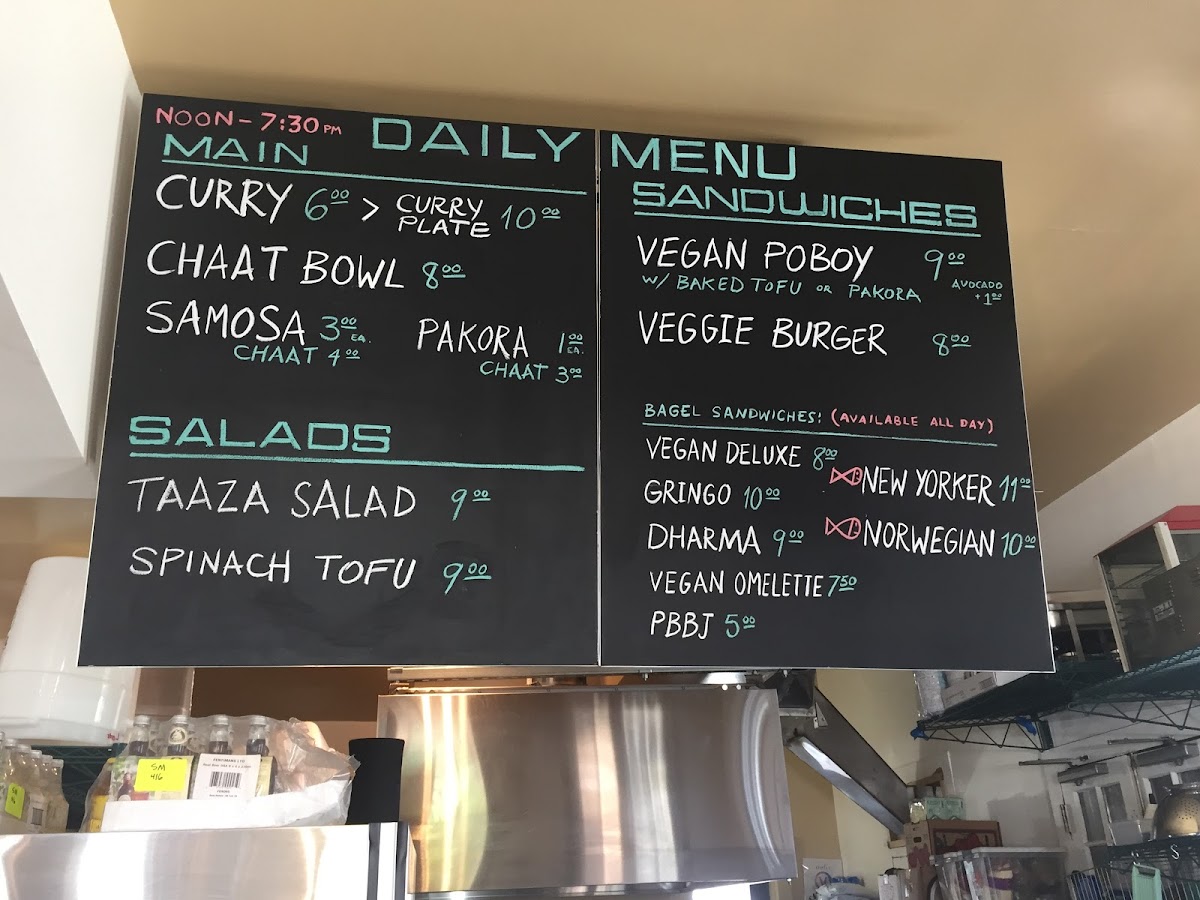 NOON - 7:30 PM
DAILY MENU
MAIN
CURRY 6.00 > CURRY PLATE 10.00
CHAAT BOWL 8.00
SAMOSA 3.00 EA.
CHAAT 4.00
PAKORA 1.00 EA.
CHAAT 3.00
SALADS
TAAZA SALAD 9.00
SPINACH TOFU 9.00
SANDWICHES
VEGAN POBOY 9.00
W/ BAKED TOFU OR PAKORA
AVOCADO
+1.00
VEGGIE BURGER 8.00
BAGEL SANDWICHES: (AVAILABLE ALL DAY)
VEGAN DELUXE 8.00
GRINGO 10.00
DHARMA 9.00
VEGAN OMELETTE 7.50
PBBJ 5.00
NEW YORKER 11.00
NORWEGIAN 10.00
SM
416